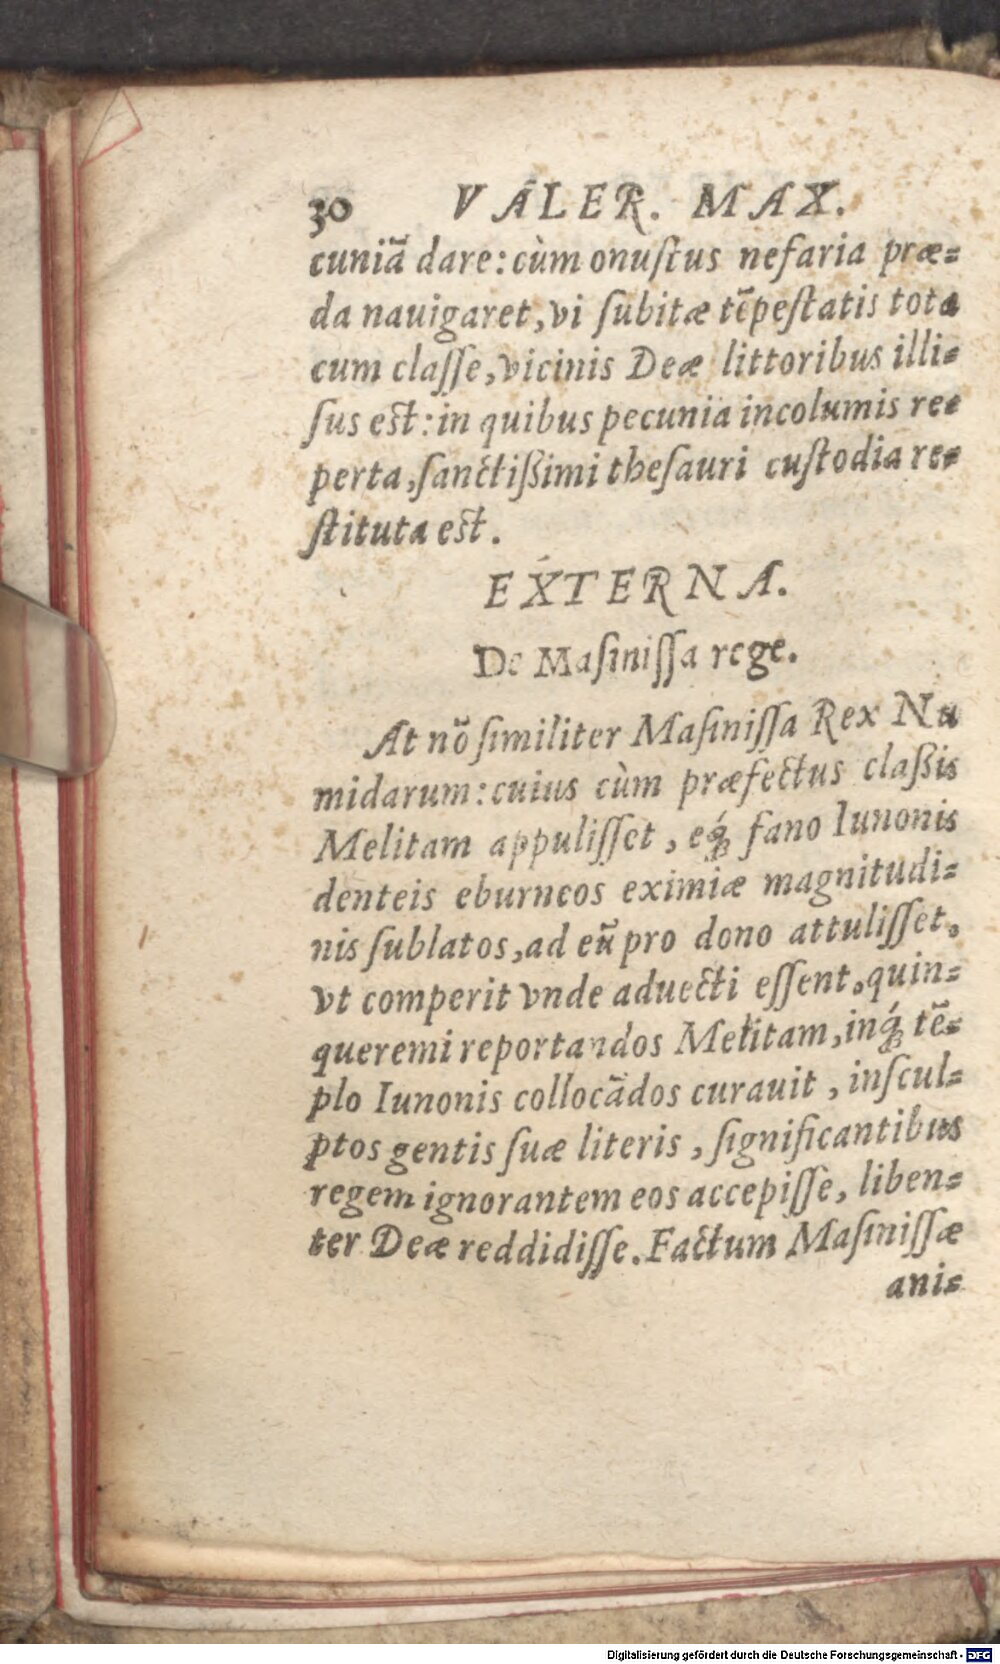 30 VALER. MAX.
cuniā dare: cùm onuſtus nefaria præ=
da nauigaret, vi ſubitæ tēpeſtatis tota
cum claſſe, vicinis Deæ littoribus illi=
ſus eſt: in quibus pecunia incolumis re=
perta, ſanctißimi theſauri cuſtodia re=
ſtituta eſt.
EXTERNA.
De Maſiniſſa rege.
At nō ſimiliter Maſiniſſa Rex Nu
midarum: cuius cùm præfectus claßis
Melitam appuliſſet, eq́; fano Iunonis
denteis eburneos eximiæ magnitudi=
nis ſublatos, ad eū pro dono attuliſſet,
vt comperit vnde aduecti eſſent, quin=
queremi reportandos Melitam, inq́; tē=
plo Iunonis collocādos curauit, inſcul=
ptos gentis ſuæ literis, ſignificantibus
regem ignorantem eos accepiſſe, liben=
ter Deæ reddidiſſe. Factum Maſiniſſæ
ani=
Digitalisierung gefördert durch die Deutsche Forschungsgemeinschaft - DFG